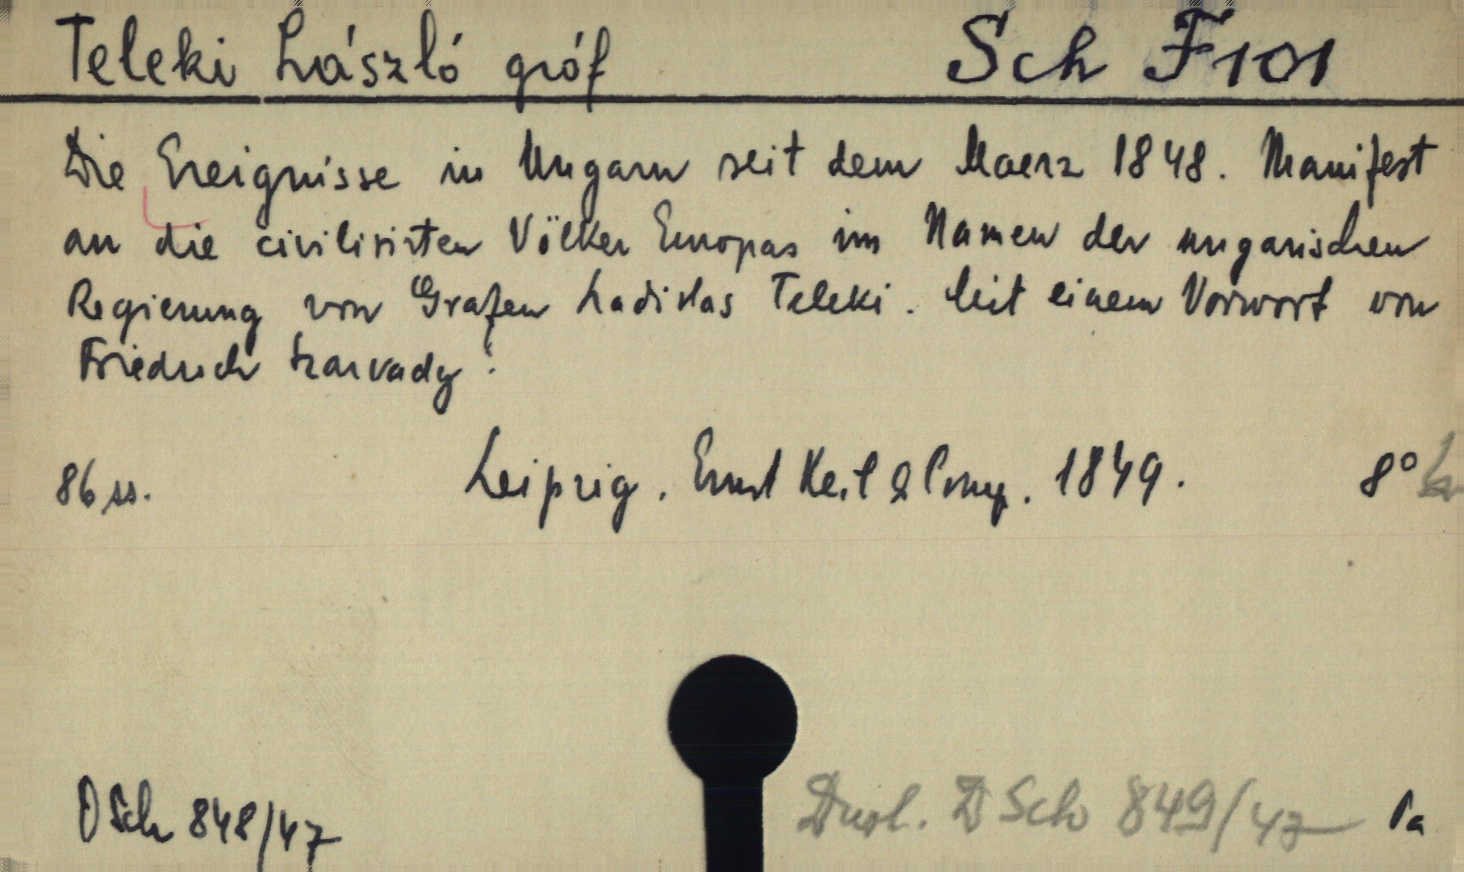 Teleki László gróf Sch F101
Die Ereignisse in Ungarn seit dem Maerz 1848. Manifest
an die civilisirten Völker Europas im Namen der ungarischen
Regierung von Grafen Ladislas Teleki. Mit einem Vorwort von
Friedrich Szarvady.
86 ss. Leipzig. Ernst Keil & Comp. 1849. 8°
D Sch 848/47 Dupl. D Sch 849/47 Pa